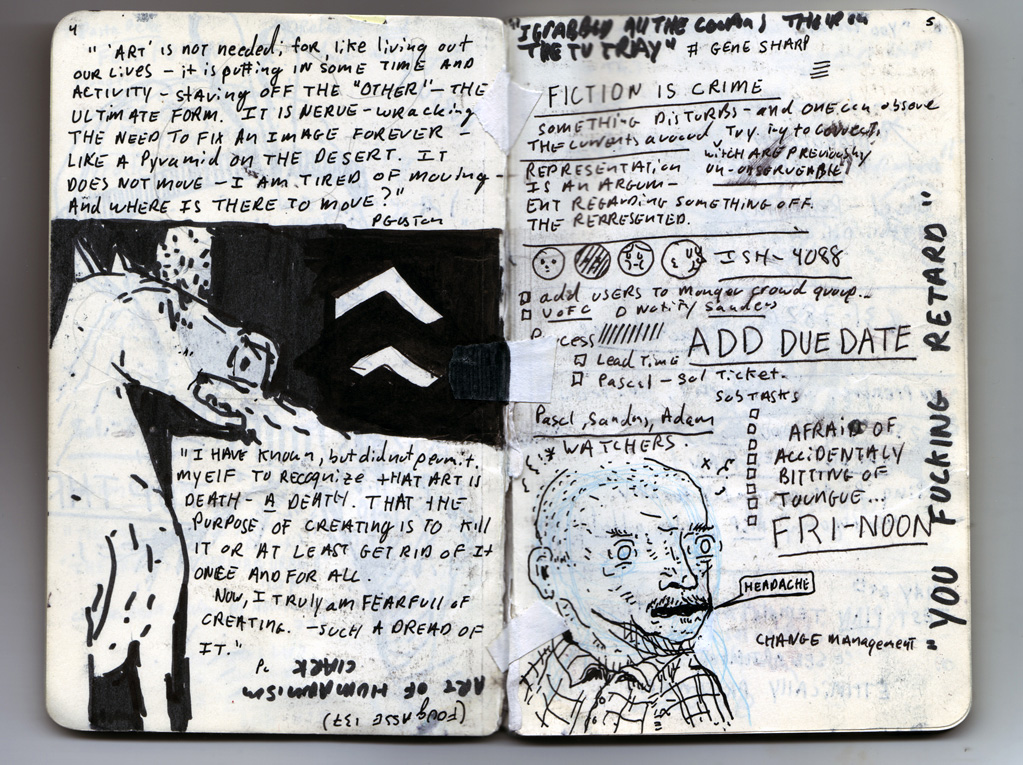 4
" 'ART' is not needed; for, like living out
OUR LIVES – it is putting in some time AND
ACTIVITY – staving OFF THE "OTHER" – THE
ULTIMATE FORM. IT IS NERVE-WRACKING
THE NEED TO FIX AN IMAGE FOREVER –
LIKE A Pyramid on THE DESERT. IT
DOES NOT MOVE – I AM TIRED OF MOVING –
AND WHERE IS THERE TO MOVE?"
PGuston
"I HAVE KNOWN, but did not permit
MYElF TO RECOGNIZE tHAT ART IS
DEATH – A DEATH. THAT tHE
PURPOSE OF CREATING IS TO Kill
IT OR AT LEAST GET RID OF It
ONCE AND FOR ALL.
NOW, I TRUly am FEARFULL OF
CREATING. – SUCH A DREAD OF
IT."
CLARK
ART OF HUMANISM
5
"I GRABBED All THE
THE TV TRAY" # GENE SHARP
FICTION IS CRIME
SOMETHING DISTURBS – and ONE CAN observe
THE currents around, Try.ing to connect,
witch ARE PREVIOUSly
un-OBSERVEABLE
REPRESENTATION
IS AN ARGUM-
ENT REGARDING SOMETHING OFF
THE REPRESENTED.
ISH-4088
add USERS TO crowd group...
UOFC Notify Sanders
Process
Lead Time
ADD DUE DATE
Pascal – Sol Ticket.
SUB TASKS
Adam
WATCHERS
AFRAID OF
ACCIDENTALY
BITTING OF
TOUNGUE...
FRI-NOON
HEADACHE
CHANGE MANAGEMENT
YOU FUCKING RETARD"